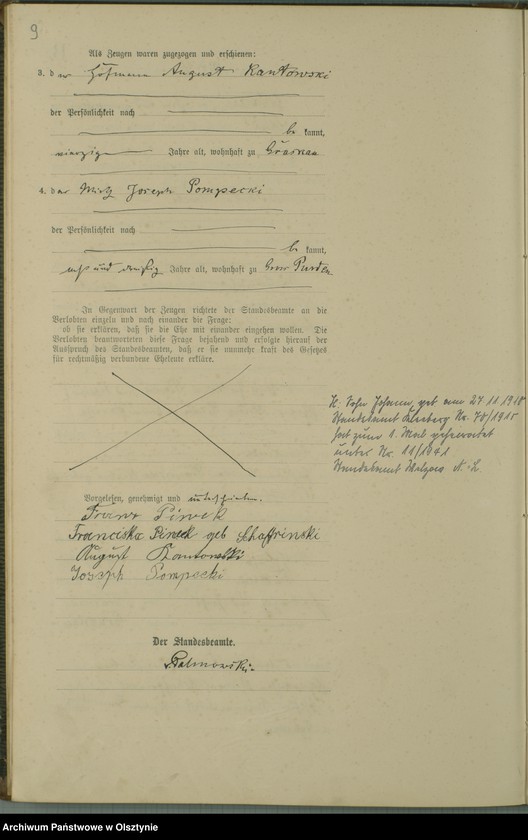 9
Als Zeugen waren zugezogen und erschienen:
3. der August Kantowski
der Persönlichkeit nach
be kannt,
vierzig Jahre alt, wohnhaft zu
4. der Wirth Joseph Pompecki
der Persönlichkeit nach
be kannt,
und dreißig Jahre alt, wohnhaft zu Gross Purden
In Gegenwart der Zeugen richtete der Standesbeamte an die
Verlobten einzeln und nach einander die Frage:
ob sie erklären, daß sie die Ehe mit einander eingehen wollen. Die
Verlobten beantworteten diese Frage bejahend und erfolgte hierauf der
Ausspruch des Standesbeamten, daß er sie nunmehr kraft des Gesetzes
für rechtmäßig verbundene Eheleute erkläre.
Sohn Johann, geb. am 27.11.1915
Standesamt Nr. 78/1915
hat zum 1. Mal geheiratet
unter Nr. 11/1941
Standesamt
Vorgelesen, genehmigt und unterschrieben.
Franz Pinek
Franciska Pinek geb Schafrinski
August Kantowski
Joseph Pompecki
Der Standesbeamte.
Palmowski
Archiwum Państwowe w Olsztynie